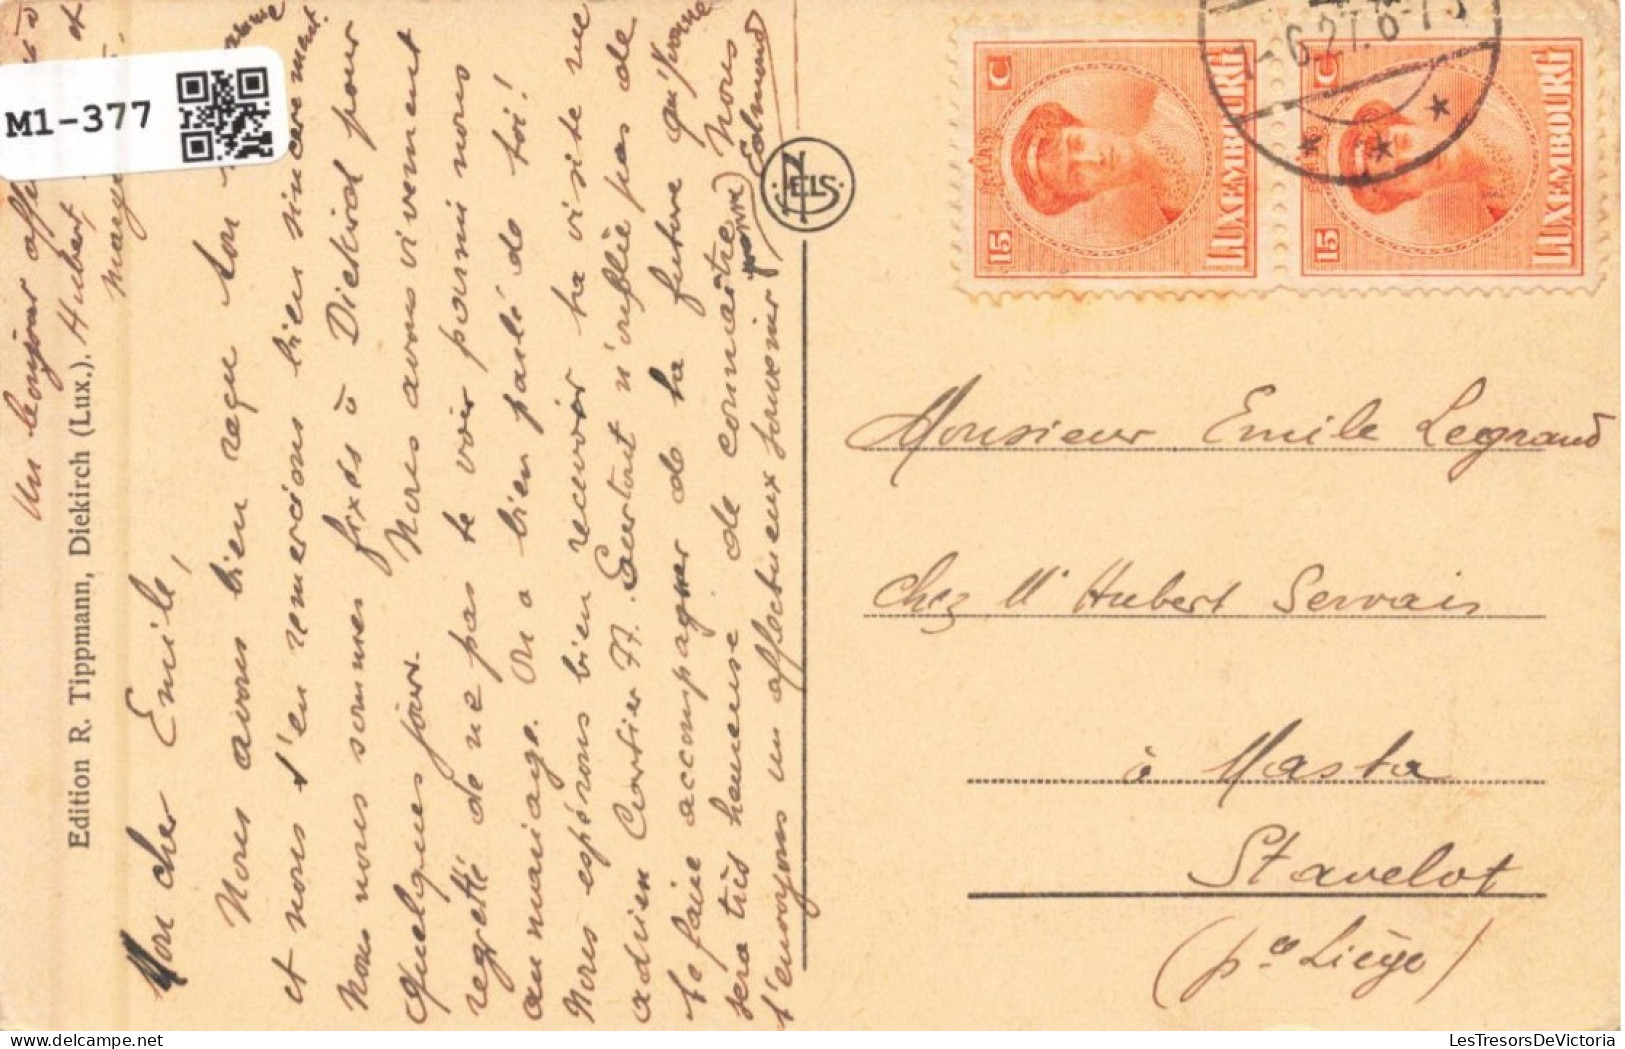 M1-377
Un bonjour
Hubert, et
Edition R. Tippmann, Diekirch (Lux.).
Mon cher Emile,
Nous avons bien reçu ton
et nous t'en remercions bien sincèrement.
Nous nous sommes fixés à Diekirch pour
quelques jours. Nous avons vivement
regretté de ne pas te voir parmi nous
au mariage. On a bien parlé de toi!
Nous espérons bien recevoir ta visite rue
Adrien Cartier 77. Surtout n'oublie pas de
te faire accompagner de ta future qu'Yvonne
sera très heureuse de connaître. Nous
t'envoyons un affectueux souvenir
Yvonne Edmond
NELS
15 C LUXEMBOURG
15 C LUXEMBOURG
-6.27.6-7
Monsieur Emile Legrand
chez Mr Hubert Servais
à Masta
Stavelot
(pce Liège)
LesTresorsDeVictoria
LesTresorsDeVictoria.com